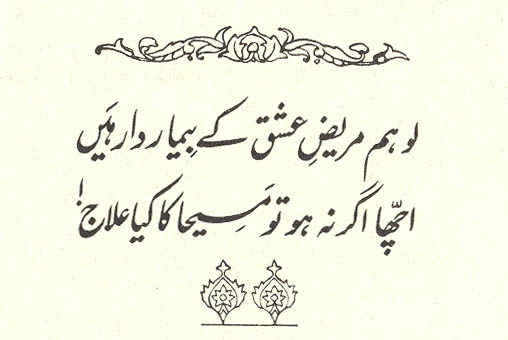 لو ہم مریضِ عشق کے بیمار دار ہیں
اچّھا اگر نہ ہو تو مسیحا کا کیا علاج!